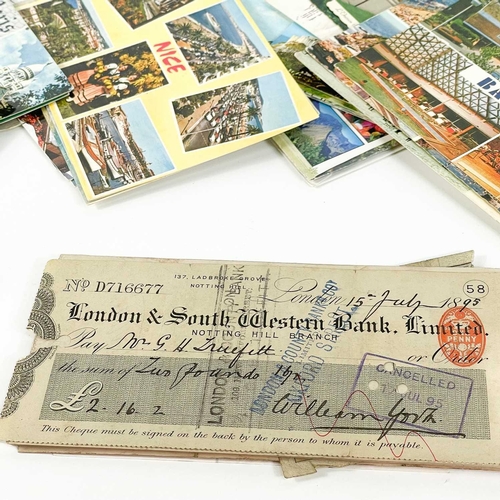 NICE
137, LADBROKE GROVE
NOTTING HILL
No D716677
58
London 15 July 1895
London & South Western Bank, Limited.
NOTTING HILL BRANCH
Pay Mr G H Truefitt or Order
PENNY
the sum of Two Pounds 16/2
CANCELLED
JUL 95
£2.16.2
William York
This Cheque must be signed on the back by the person to whom it is payable.